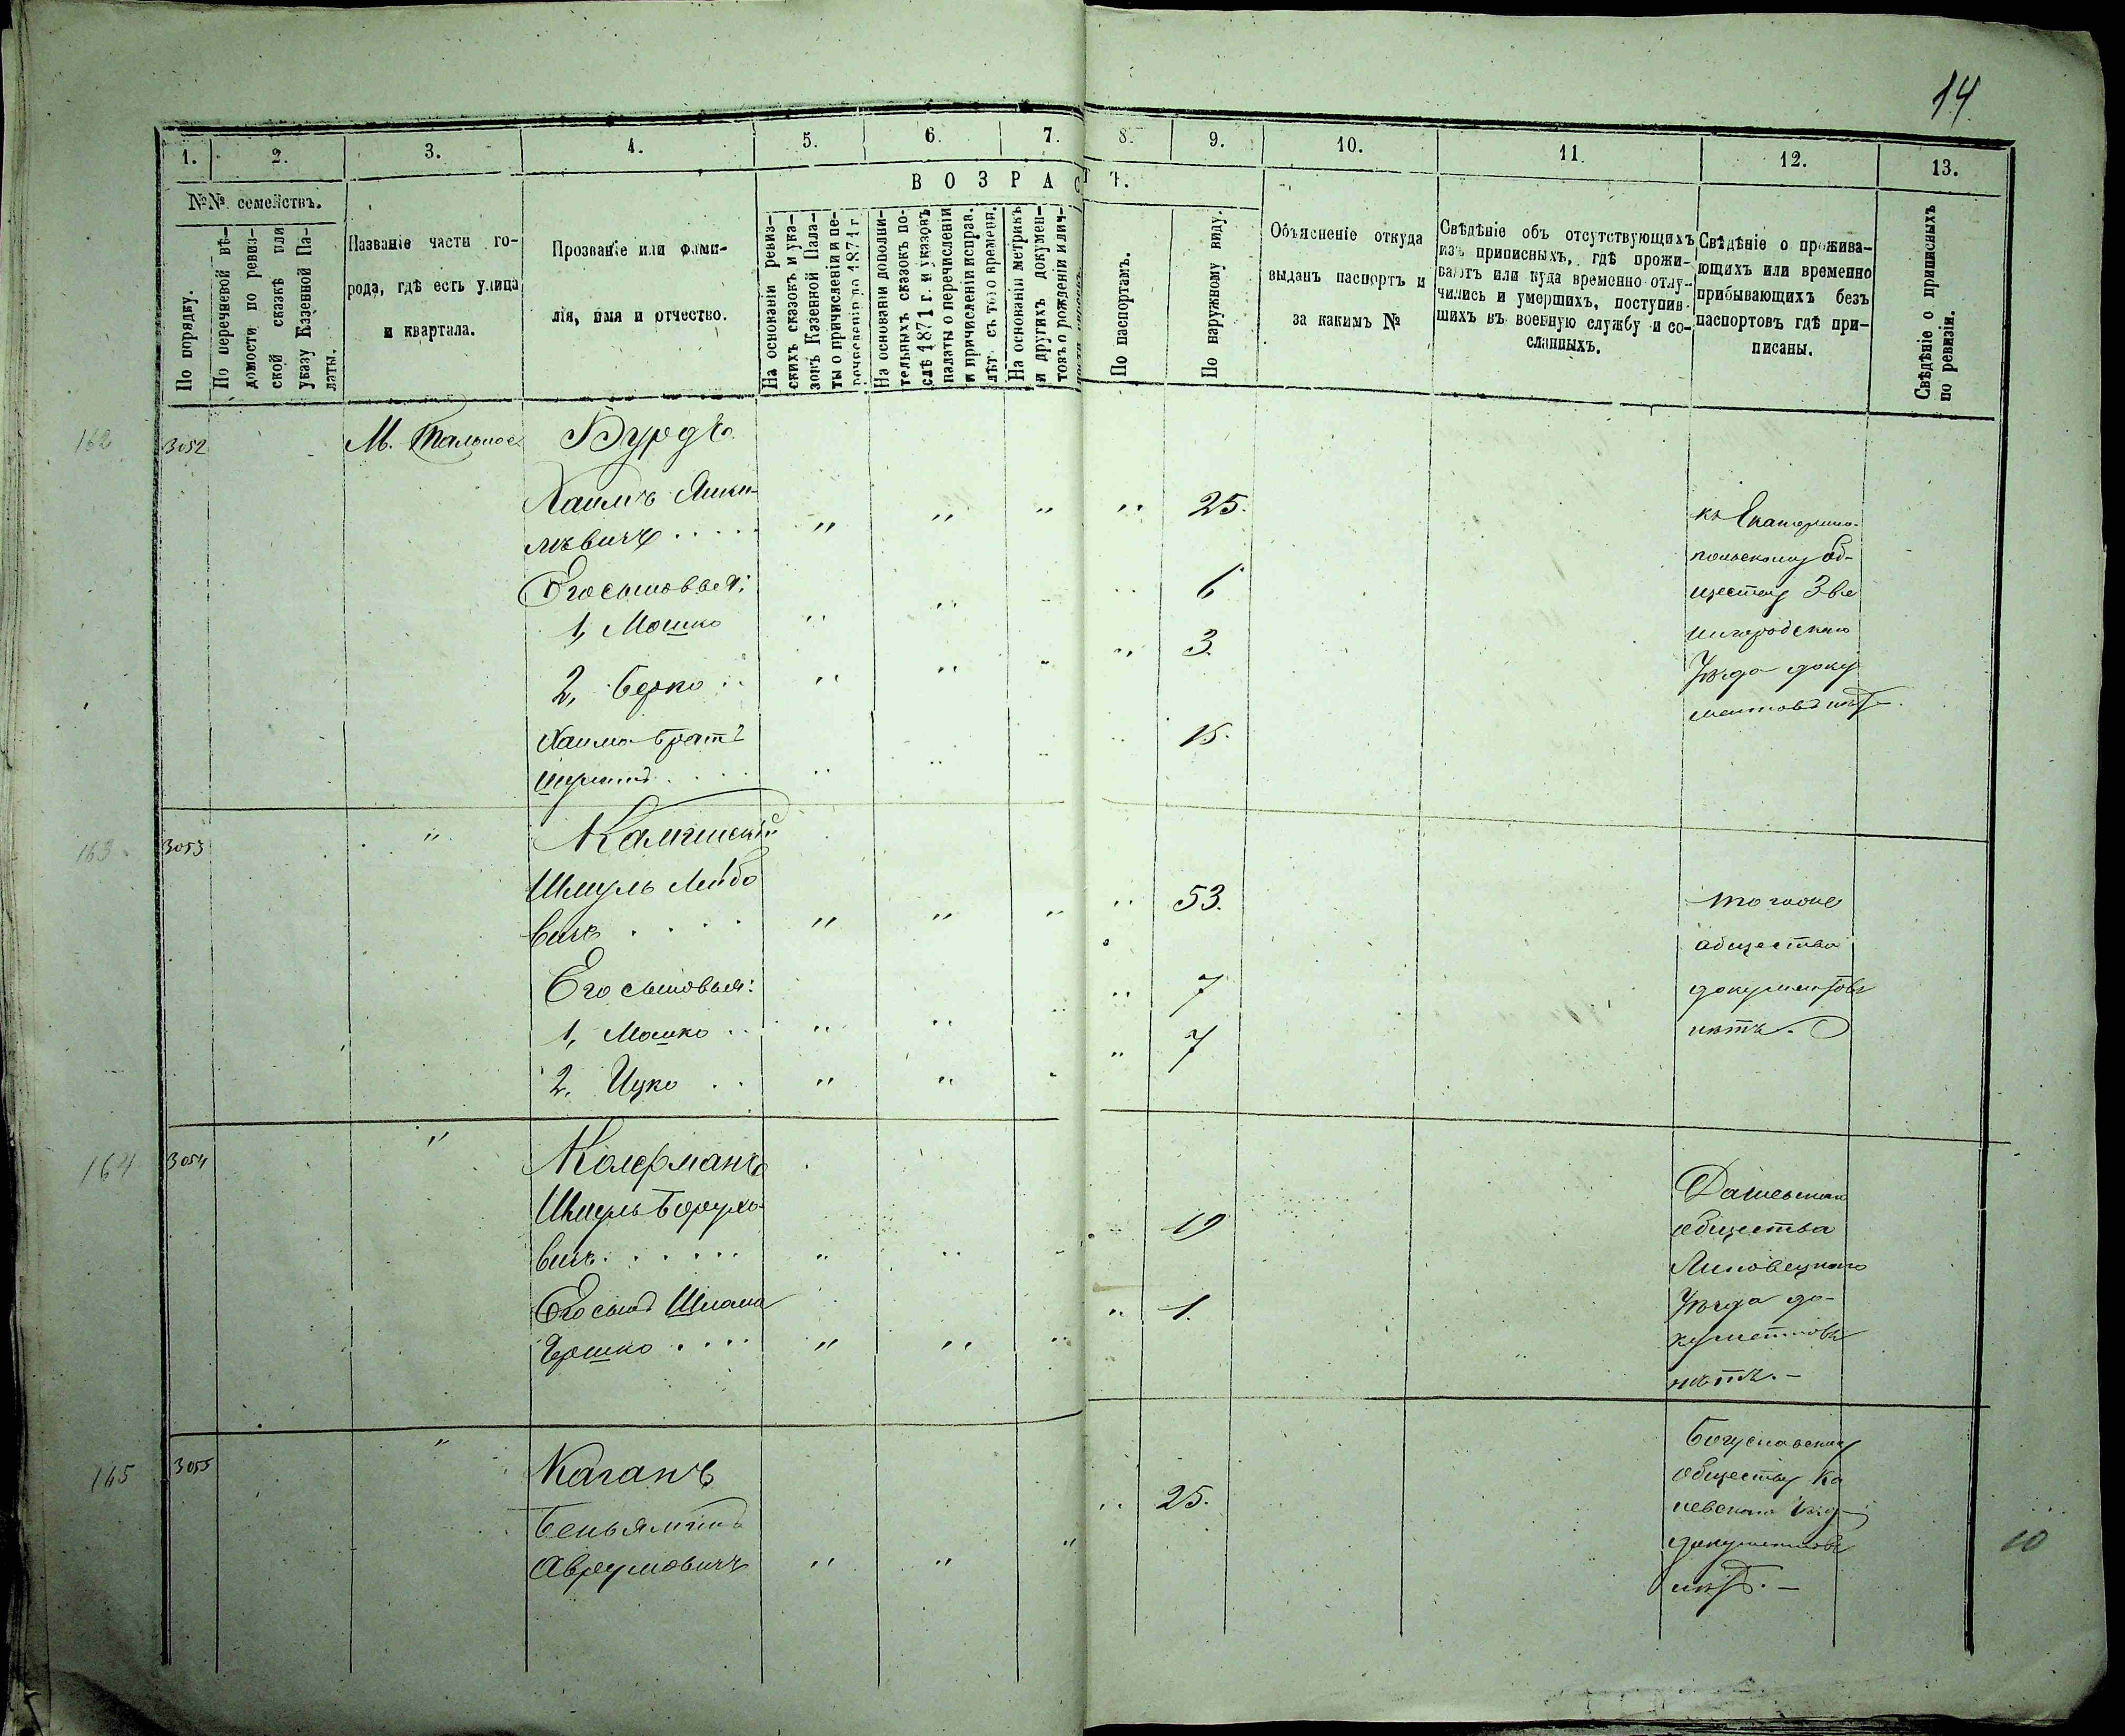 14
1. 2. 3. 4. 5. 6. 7. 8. 9. 10. 11. 12. 13.
№№ семействъ.
В О З Р А С Т Ъ.
По порядку.
По перечневой вѣ-
домости по ревиз-
ской сказкѣ или
указу Казенной Па-
латы.
Названіе части го-
рода, гдѣ есть улица
и квартала.
Прозваніе или фами-
лія, имя и отчество.
На основаніи ревиз-
скихъ сказокъ и ука-
зовъ Казенной Пала-
ты о причисленіи и пе-
речисленіи до 1871 г.
На основаніи дополни-
тельныхъ сказокъ по-
слѣ 1871 г. и указовъ
палаты о перечисленіи
и причисленіи исправ.
лѣт. съ того времени.
На основаніи метрикъ
и другихъ докумен-
товъ о рожденіи и лич-
По паспортамъ.
По наружному виду.
Объясненіе откуда
выданъ паспортъ и
за какимъ №
Свѣдѣніе объ отсутствующихъ
изъ приписныхъ, гдѣ прожи-
ваютъ или куда временно отлу-
чились и умершихъ, поступив-
шихъ въ военную службу и со-
сланныхъ.
Свѣдѣніе о прожива-
ющихъ или временно
прибывающихъ безъ
паспортовъ гдѣ при-
писаны.
Свѣдѣніе о приписныхъ
по ревизіи.
162 3052 М. Тальное Бурдъ
Хаимъ Янке-
левичъ . . . . . " " " " 25.
Его сыновья:
1, Мошко " " " " 6
2, Берко . . " " " " 3.
Хаима братъ
. . . . " " " " 15.
къ Екатерино-
польскому об-
ществу Зве-
нигородскаго
Уѣзда доку-
ментовъ нѣтъ.
163 3053 "
Шмуль Лейбо
вичъ . . . . " " " " 53.
Его сыновья:
1, Мошко . . " " " " 7
2, Ицко . . " " " " 7
того же
общества
документовъ
нѣтъ.
164 3054 " Колерманъ
Шмуль Борухо-
вичъ . . . . . . " " " " 19
Его сынъ Шлома
Гершко . . . . " " " " 1.
Дашевскаго
общества
Липовецкаго
Уѣзда до-
кументовъ
нѣтъ. —
165 3055 " Каганъ
Беньяминъ
Аврумовичъ " " " " 25.
Богуславскому
обществу Ка
невскаго Уѣзд
документовъ
нѣтъ. —
10